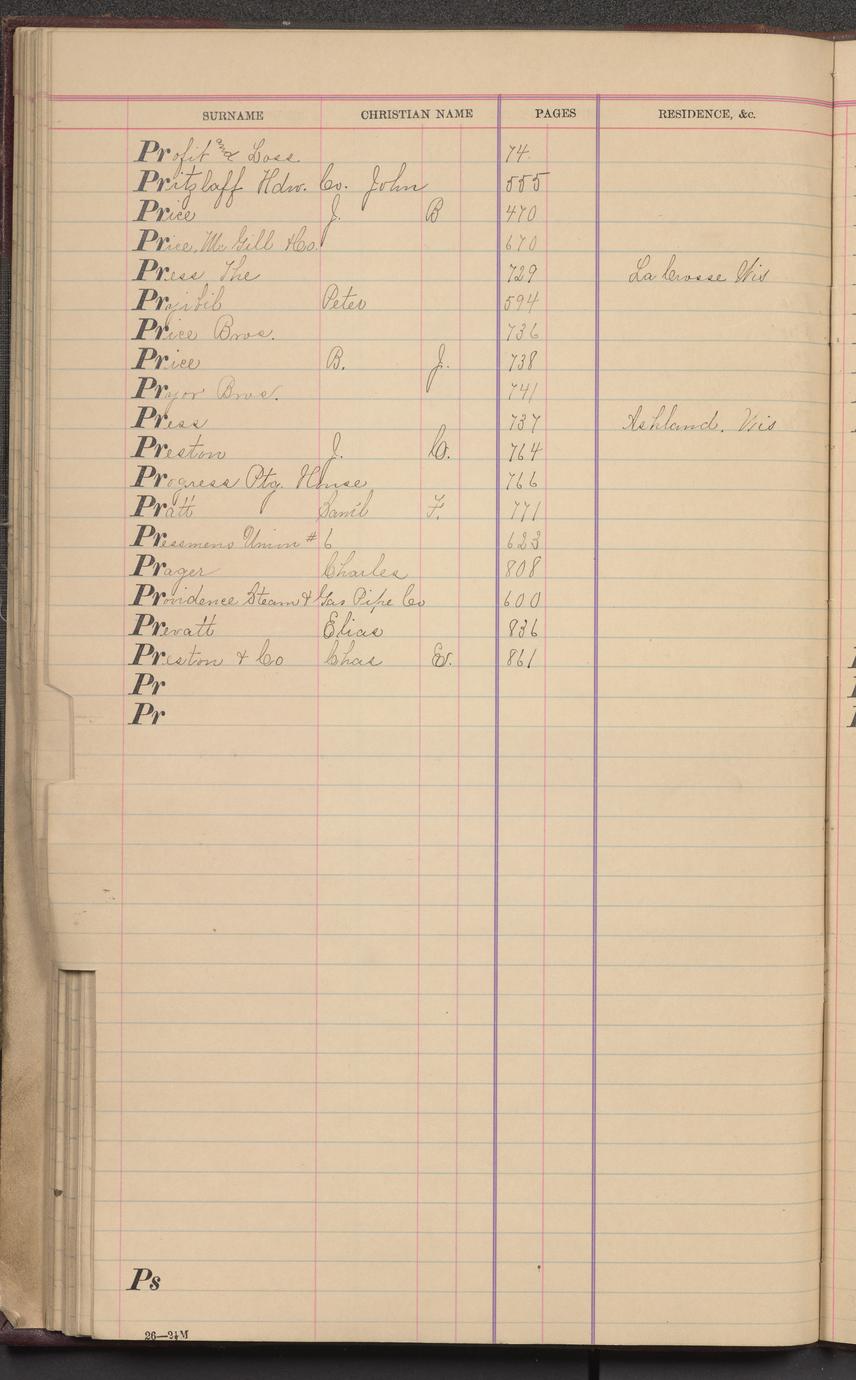 SURNAME CHRISTIAN NAME PAGES RESIDENCE, &c.
Profit and Loss 74
Pritzlaff Hdw. Co. John 555
Price J. B 470
Price, McGill & Co. 670
Press The 729 La Crosse Wis
Przybil Peter 594
Price Bros. 736
Price B. J. 738
Pryor Bros. 741
Press 737 Ashland. Wis
Preston J. C. 764
Progress Ptg. House 766
Pratt Saml F. 771
Pressmens Union # 6 623
Prager Charles 808
Providence Steam & Gas Pipe Co 600
Prevatt Elias 836
Preston & Co Chas E. 861
Pr
Pr
Ps
26—2½M